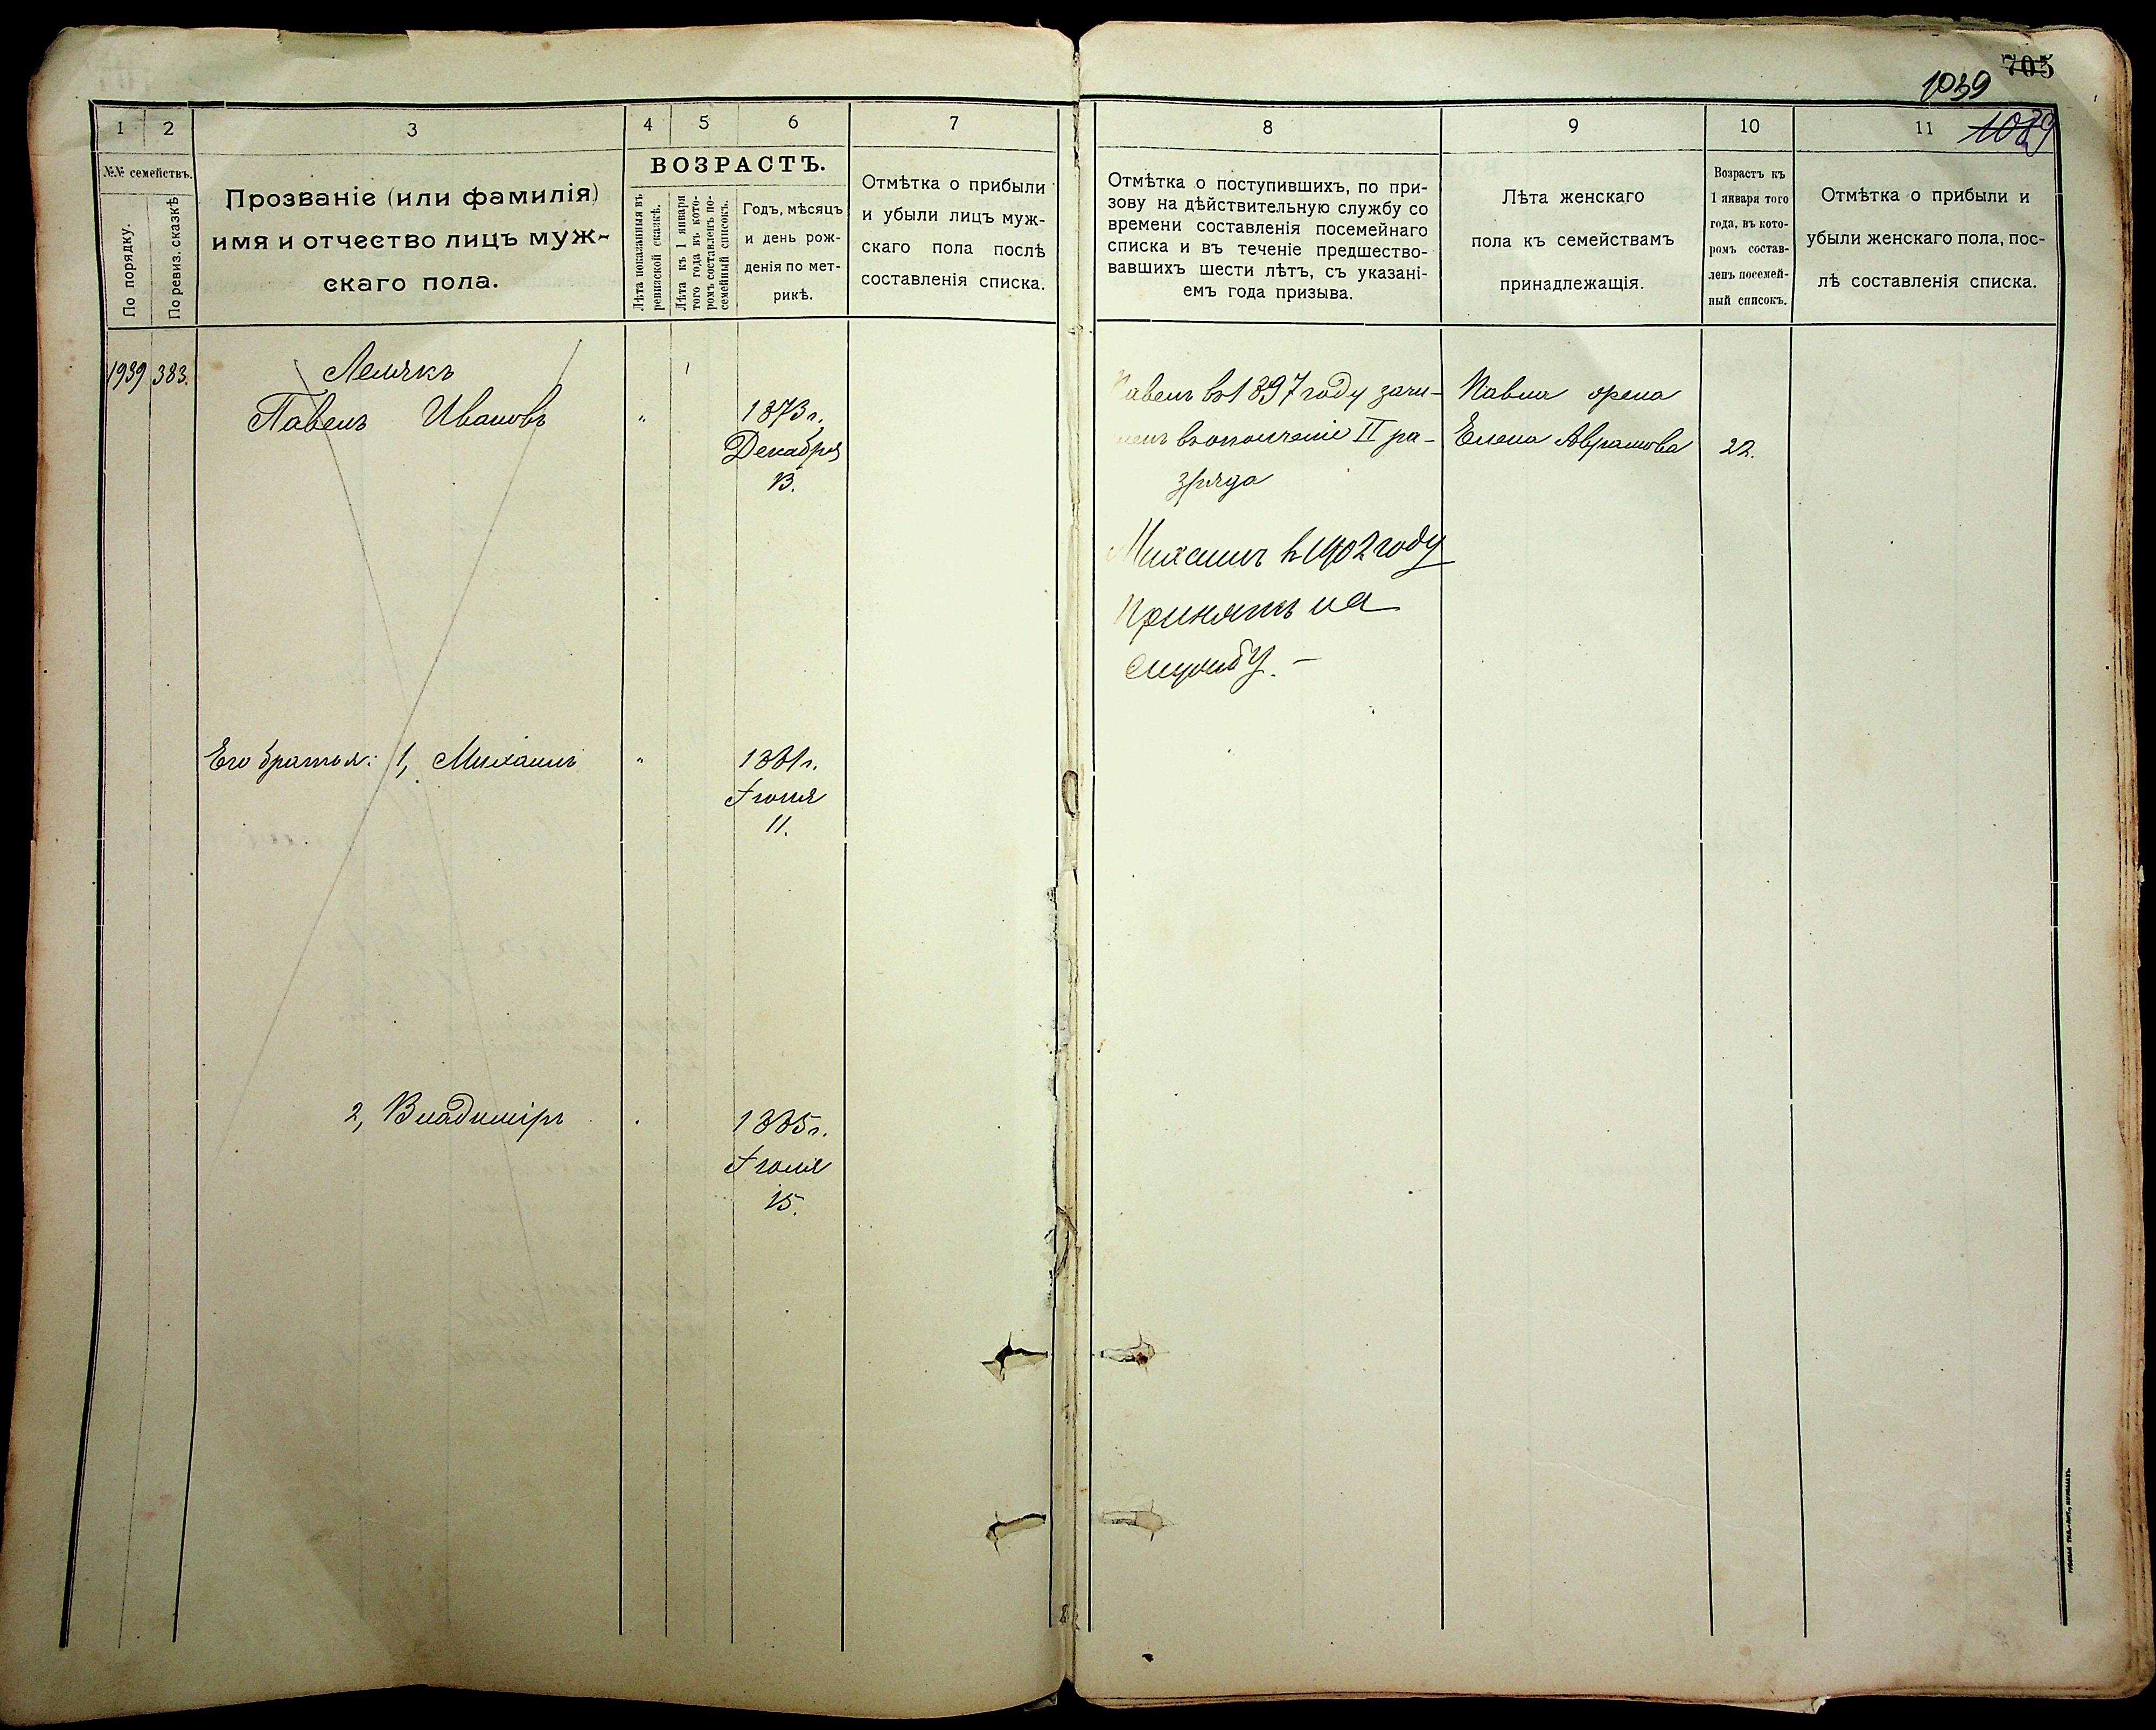 705
1039
1 2 3 4 5 6 7
№№ семействъ.
По порядку.
По ревиз. сказкѣ
Прозваніе (или фамилія)
имя и отчество лицъ муж-
скаго пола.
ВОЗРАСТЪ.
Лѣта показанныя въ
ревизской сказкѣ.
Лѣта къ 1 января
того года въ кото-
ромъ составленъ по-
семейный списокъ.
Годъ, мѣсяцъ
и день рож-
денія по мет-
рикѣ.
Отмѣтка о прибыли
и убыли лицъ муж-
скаго пола послѣ
составленія списка.
8 9 10 11
Отмѣтка о поступившихъ, по при-
зову на дѣйствительную службу со
времени составленія посемейнаго
списка и въ теченіе предшество-
вавшихъ шести лѣтъ, съ указані-
емъ года призыва.
Лѣта женскаго
пола къ семействамъ
принадлежащія.
Возрастъ къ
1 января того
года, въ кото-
ромъ состав-
ленъ посемей-
ный списокъ.
Отмѣтка о прибыли и
убыли женскаго пола, пос-
лѣ составленія списка.
1939 383. Лемякъ
Павелъ Ивановъ " 1873 г.
Декабря
13.
Его братья: 1, Михаилъ " 1881 г.
Іюня
11.
2, Владиміръ 1885 г.
Іюля
15.
Павелъ въ 1897 году зачи-
ленъ въ ополченіе II ра-
зряда
Михаилъ въ 1902 году
Принятъ на
службу. –
Павла жена
Елена Авраамова 22.